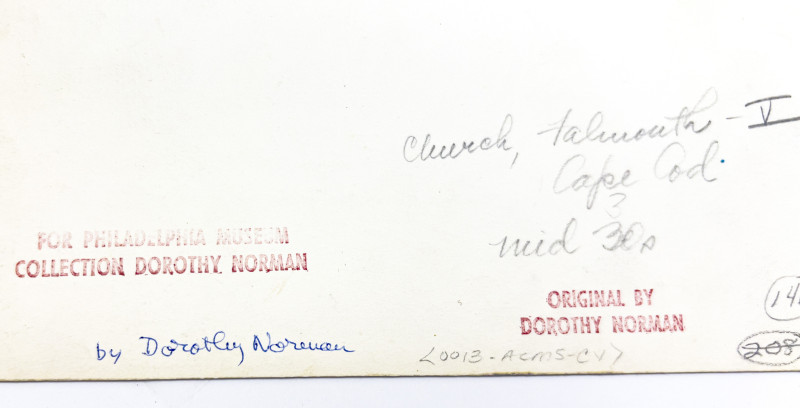 Church, Falmouth - V
Cape Cod
?
mid 30s
FOR PHILADELPHIA MUSEUM
COLLECTION DOROTHY NORMAN
ORIGINAL BY
DOROTHY NORMAN
by Dorothy Norman
<0013-ACMS-CV>
208